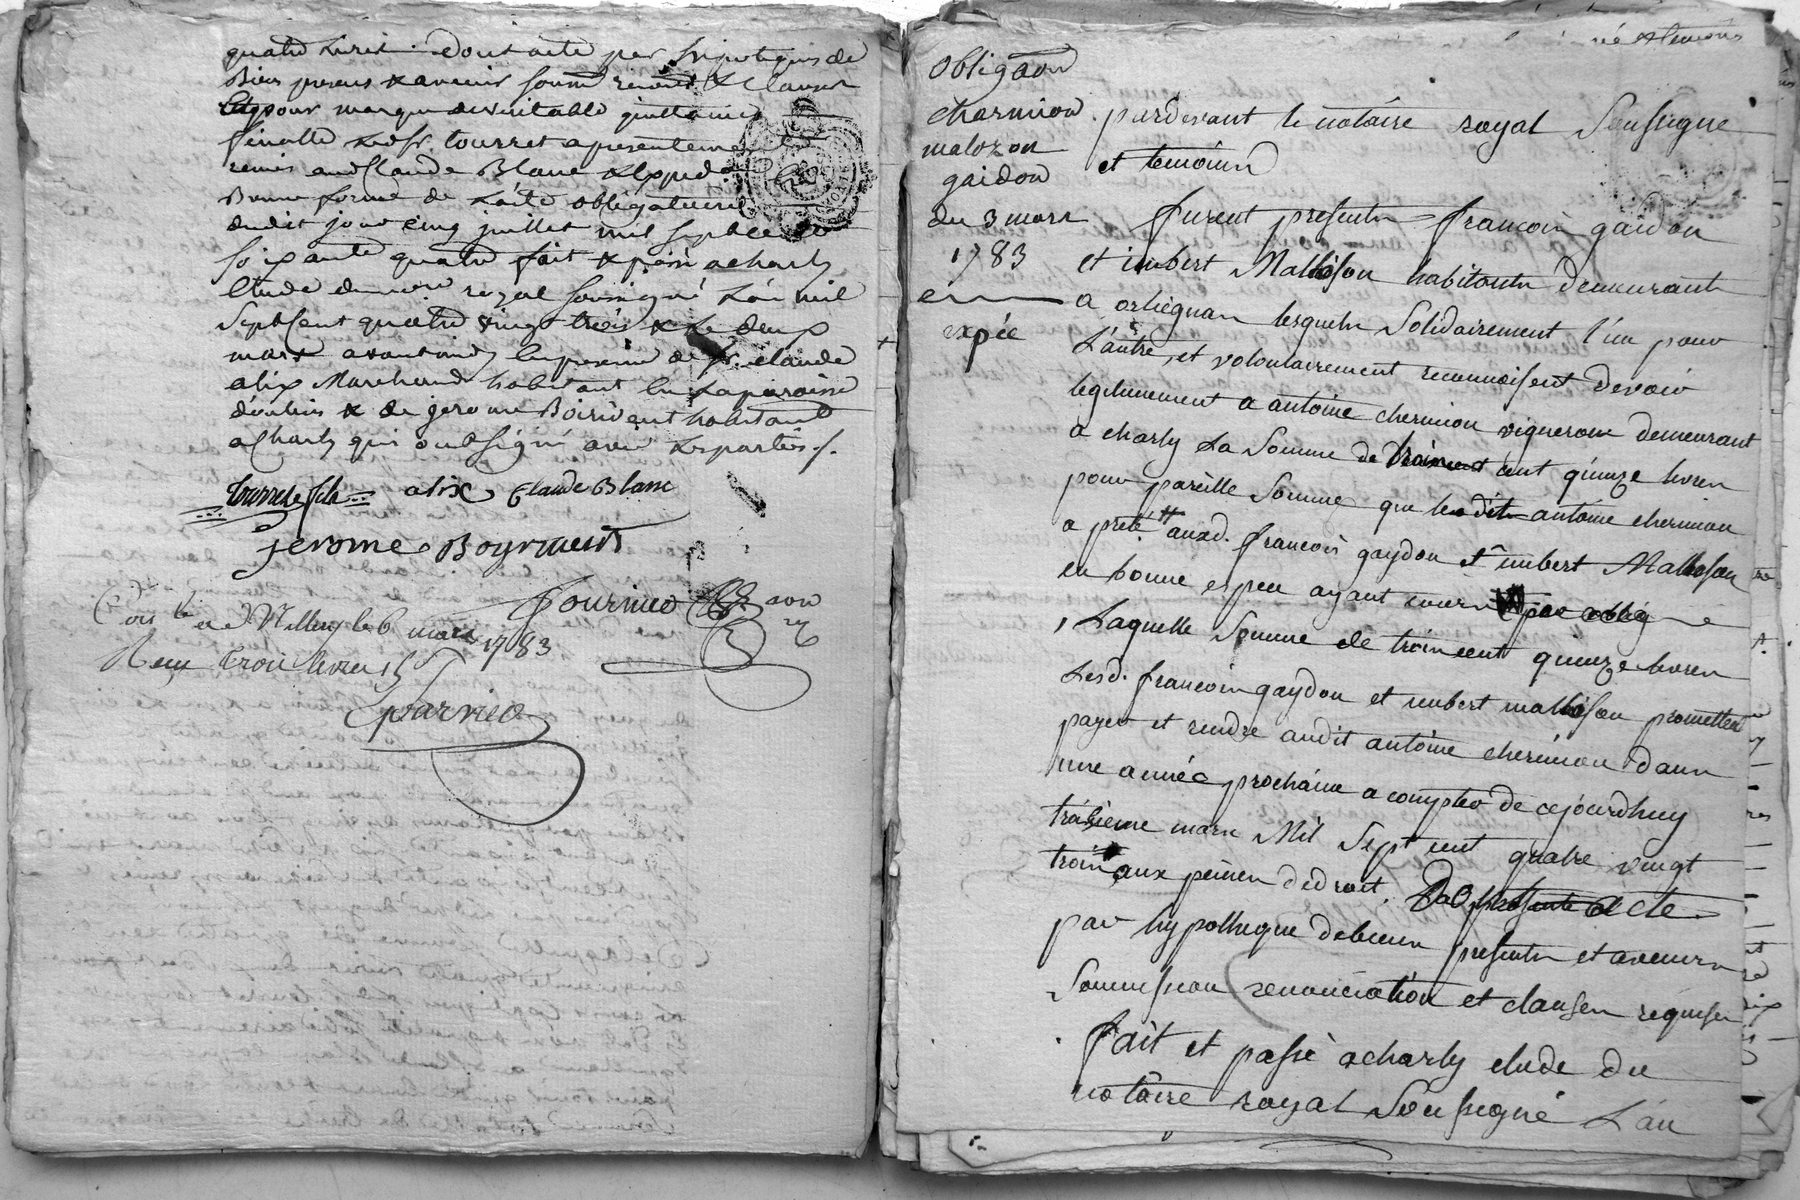 quatre livres. Dont acte par hipoteques de
Biens presens & avenir soum renon & Clauses
Et pour marque de veritable quittance
finalle led sr tourret a presentement
remis audt Claude Blanc l'exped.
Bonne forme de L'acte obligatoire
dudit jour cinq juillet mil sept cent
soixante quatre fait & passé a charly
Etude du nore royal soussigné L'an mil
Sept Cent quatre vingt trois & Le deux
mars avant midy En presence de sr. claude
alix Marchand habitant En La paroisse
d'oulins & de jerome Boirivent habitant
a Charly qui ont signé avec Les parties ./.
tourret fils alix Claude Blanc
jerome Boyrivent
fournier
a Millery le 6 mars 1783
Reçu trois livres 15 s
obligaon
charmion
malozon
gaidon
du 3 mars
1783
expée
pardevant le notaire royal Soussigné
et temoins
furent presents françois gaidon
et imbert Mallosou habitants demeurant
a orliegnas lesquels Solidairement l'un pour
L'autre, et volontairement reconnoisent devoir
legitimement a antoine chermion vigneron demeurant
a charly La Somme de trois cent quinze livres
pour pareille Somme que ledit antoine chermion
a preté auxd. françois gaydon et imbert Mallosou
en bonne espece ayant cours
Laquelle Somme de trois cent quinze livres
Lesd. françois gaydon et imbert mallosou promettent
payer et rendre audit antoine chermion dans
une année prochaine a compter de cejourdhuy
troisieme mars Mil Sept cent quatre vingt
trois aux peines de droit. Dont acte
par hypotheque de biens presents et avenirs
Soumission renonciation et clauses requises
fait et passé a charly etude du
notaire royal Soussigné L'an